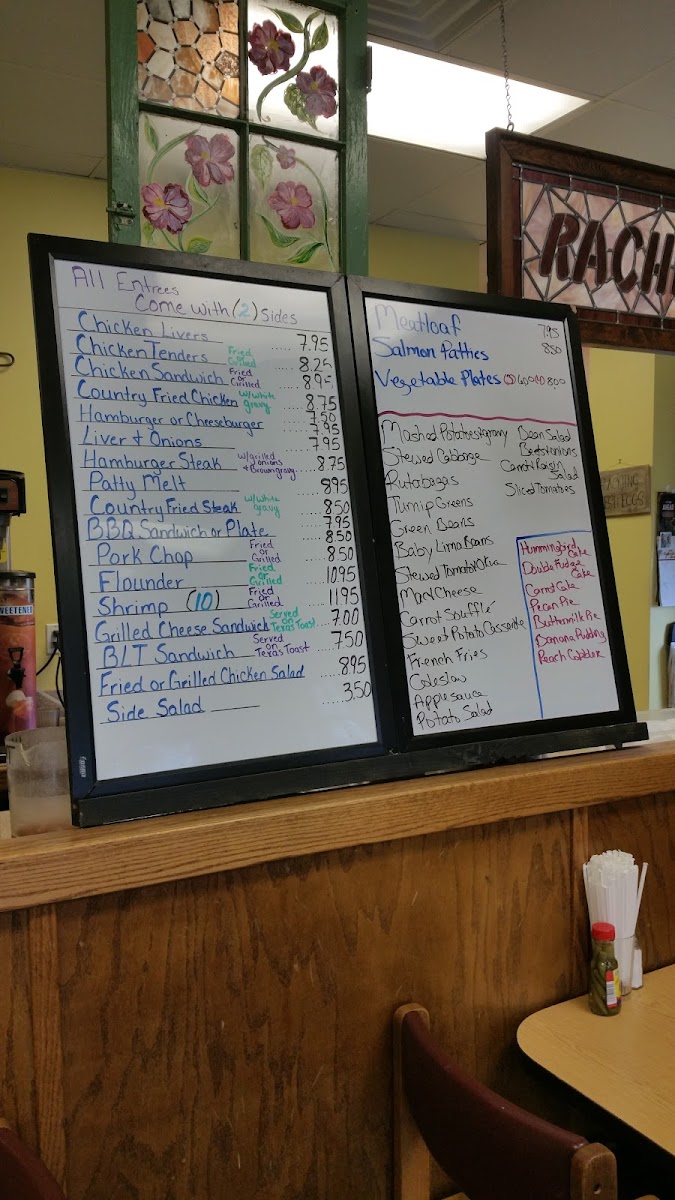 All Entrees
Come with (2) Sides
Chicken Livers 7.95
Chicken Tenders Fried or Grilled 8.25
Chicken Sandwich Fried or Grilled 8.95
Country Fried Chicken w/white gravy 8.75
Hamburger or Cheeseburger 7.50 7.95
Liver & Onions 7.95
Hamburger Steak w/grilled onions & brown gravy 8.75
Patty Melt 8.95
Country Fried Steak w/white gravy 8.50
BBQ Sandwich or Plate 7.95 8.50
Pork Chop Fried or Grilled 8.50
Flounder Fried or Grilled 10.95
Shrimp (10) Fried or Grilled 11.95
Grilled Cheese Sandwich Served on Texas Toast 7.00
BLT Sandwich Served on Texas Toast 7.50
Fried or Grilled Chicken Salad 8.95
Side Salad 3.50
Meatloaf 7.95
Salmon Patties 8.50
Vegetable Plates (3) 6.00 (4) 8.00
Mashed Potatoes & gravy
Stewed Cabbage
Rutabagas
Turnip Greens
Green Beans
Baby Lima Beans
Stewed Tomato/Okra
Mac/Cheese
Carrot Souffle
Sweet Potato Casserole
French Fries
Coleslaw
Applesauce
Potato Salad
Bean Salad
Beets & onions
Carrot Raisin
Salad
Sliced Tomatoes
Hummingbird
Cake
Double Fudge
Cake
Carrot Cake
Pecan Pie
Buttermilk Pie
Banana Pudding
Peach Cobbler
RACH